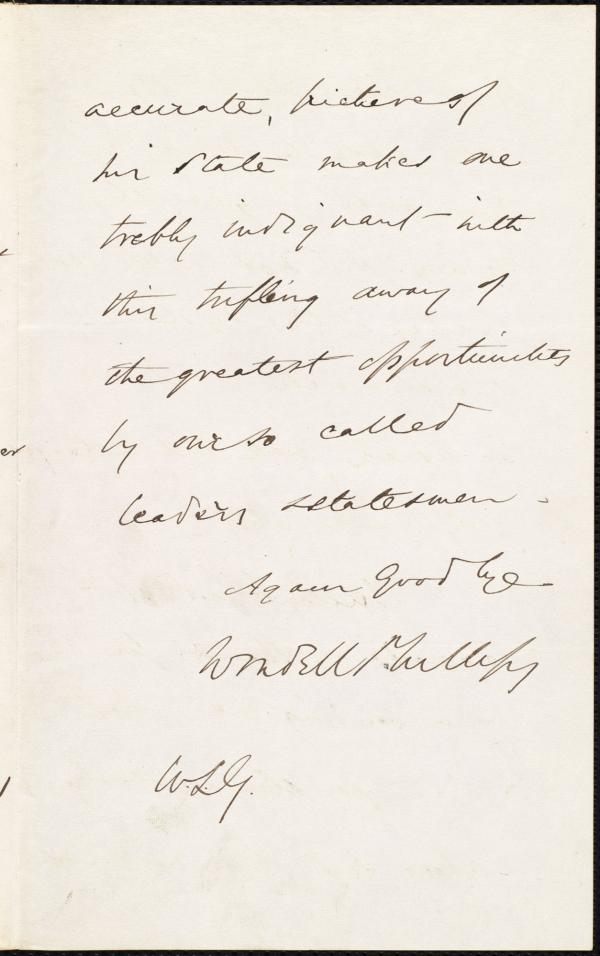 accurate, picture of
his state makes one
trebly indignant with
this trifling away of
the greatest opportunities
by our so called
leaders & statesmen -
Again Good bye
Wendell Phillips
W.L.G.